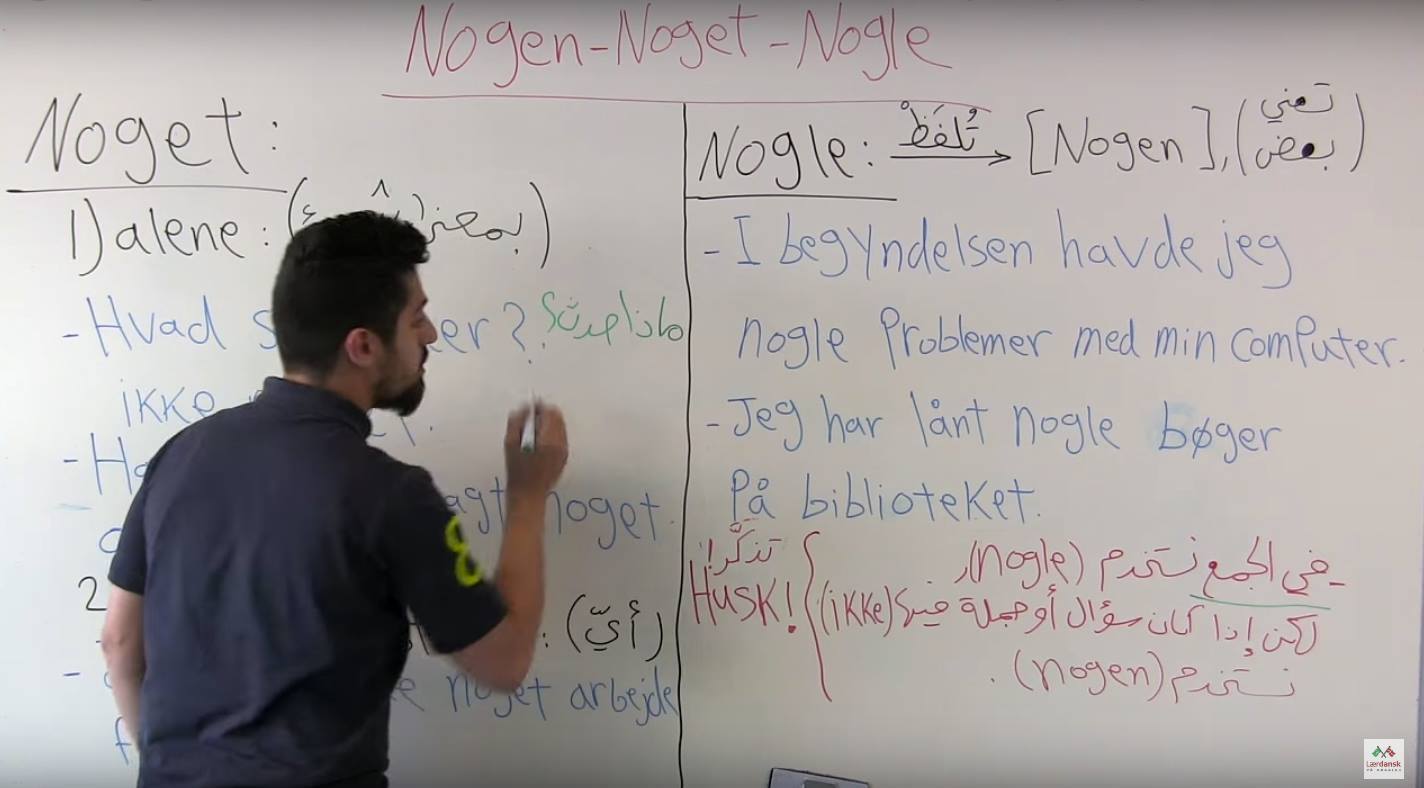 Nogen-Noget-Nogle
Noget:
1) alene: (بمعنى
- Hvad s er? ماذا حدث؟
ikke
- Ha
agt noget.
2 : (أيّ)
- e noget arbejde
f
Nogle: تُلفَظْ → [Nogen], (تعني بعض)
- I begyndelsen havde jeg
nogle problemer med min computer.
- Jeg har lånt nogle bøger
På biblioteket.
تذكَّر!
HUSK!
- في الجمع نستخدم (nogle),
لكن إذا كان سؤال أو جملة فيها (ikke)
نستخدم (nogen).
Lærdansk